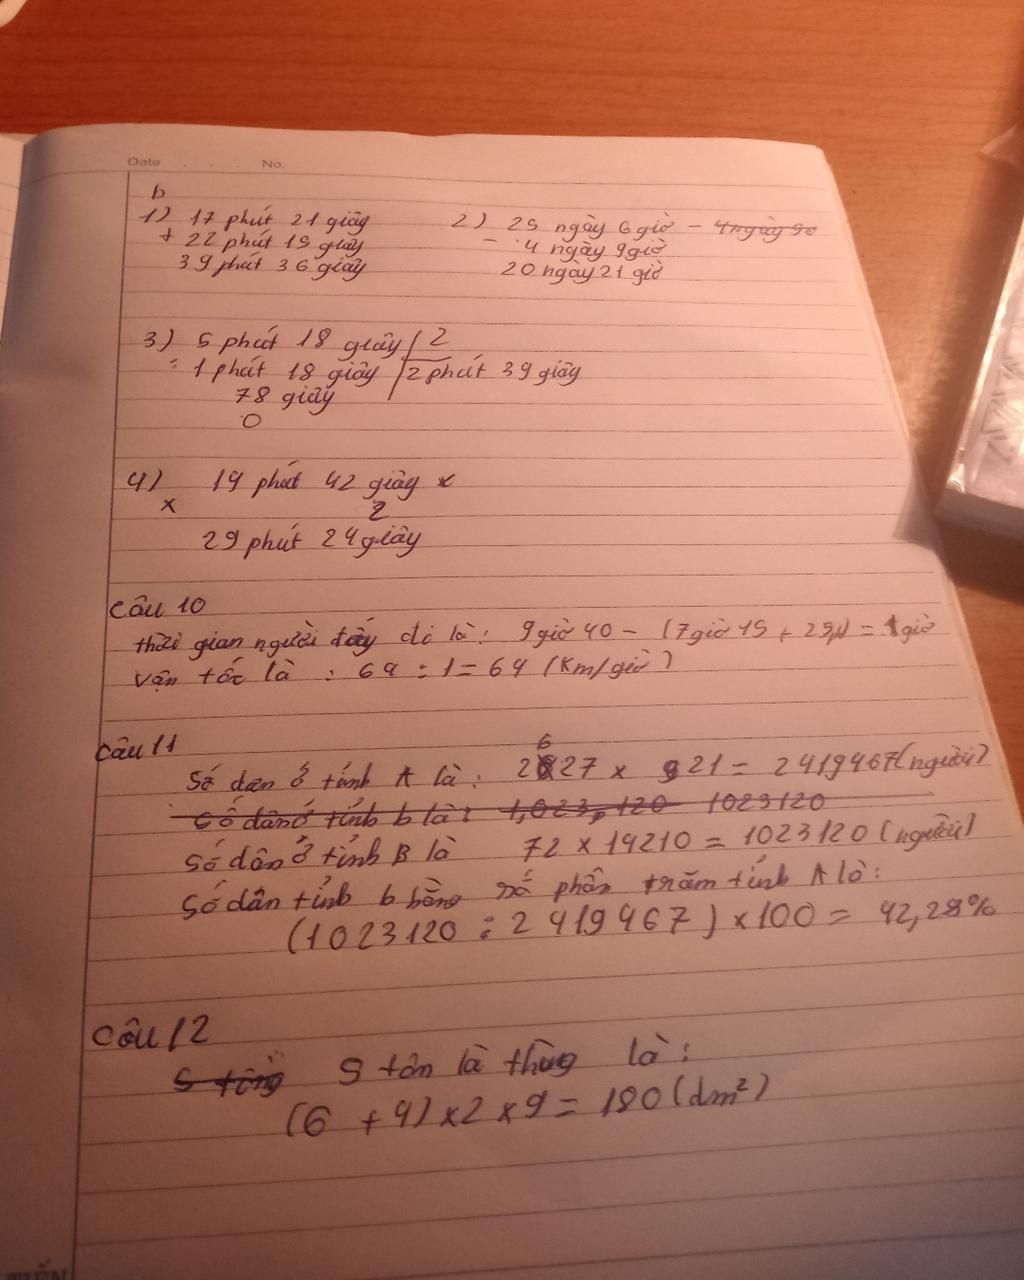 Date . . . No.
b
1) 17 phút 21 giây
+ 22 phút 15 giây
39 phút 36 giây
2) 25 ngày 6 giờ -
- 4 ngày 9 giờ
20 ngày 21 giờ
3) 5 phút 18 giây 2
1 phút 18 giây 2 phút 39 giây
78 giây
0
4) 14 phút 42 giây x
x 2
29 phút 24 giây
Câu 10
thời gian người đi là: 9 giờ 40 - (7 giờ 15 + 25) = 1 giờ
vận tốc là : 64 : 1 = 64 (Km/giờ)
Câu 11
Số dân ở tỉnh A là: 2627 x 921 = 2419467 (người)
số dân ở tỉnh b là: 1,023,120 1023120
Số dân ở tỉnh B là 72 x 14210 = 1023120 (người)
Số dân tỉnh b bằng số phần trăm tỉnh A là:
(1023120 : 2419467) x 100 = 42,28%
Câu 12
S tôn là thùng là:
(6 + 4) x 2 x 9 = 180 (dm²)